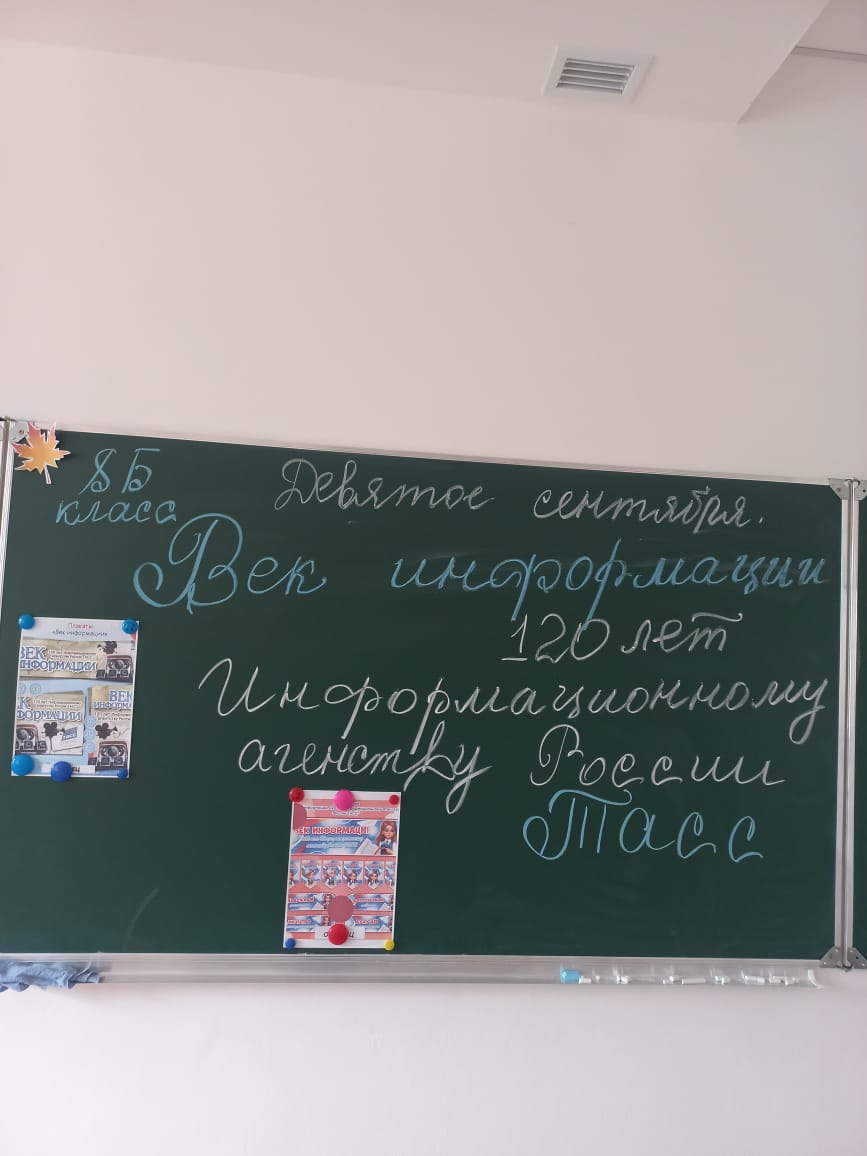 8Б
класс
Девятое сентября.
Век информации
120 лет
Информационному
агенству России
Тасс
Плакаты
«Век информации»
ВЕК
ИНФОРМАЦИИ
ВЕК
ИНФОРМАЦИИ
ВЕК ИНФОРМАЦИ